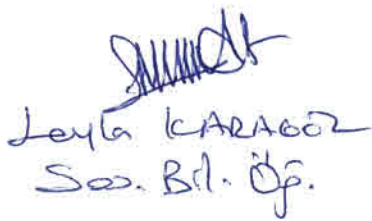 Leyla KARAGÖZ
Sos. Bil. Öğ.